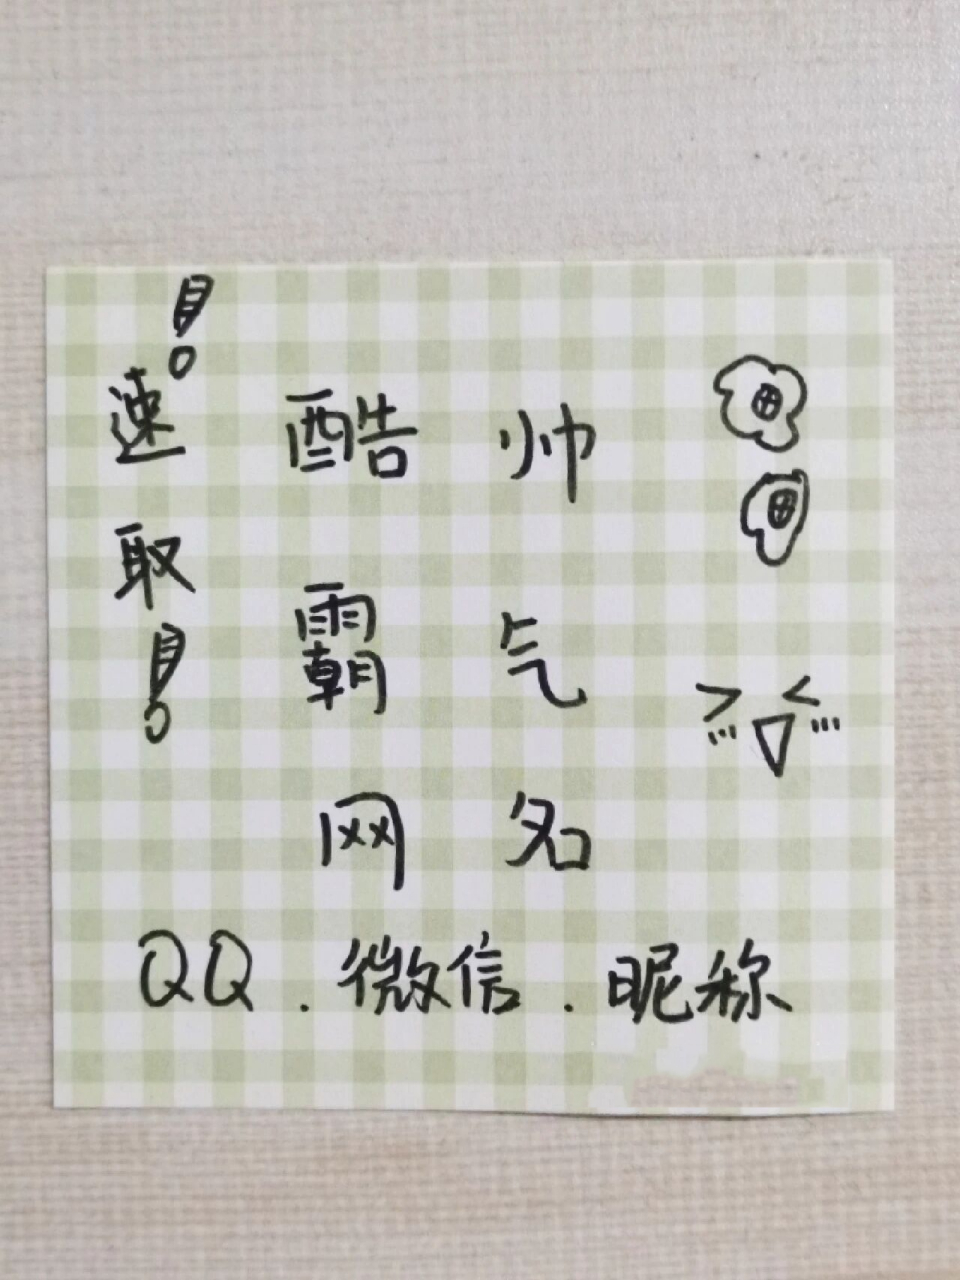 ！速取！
酷帅
霸气
网名
QQ.微信.昵称